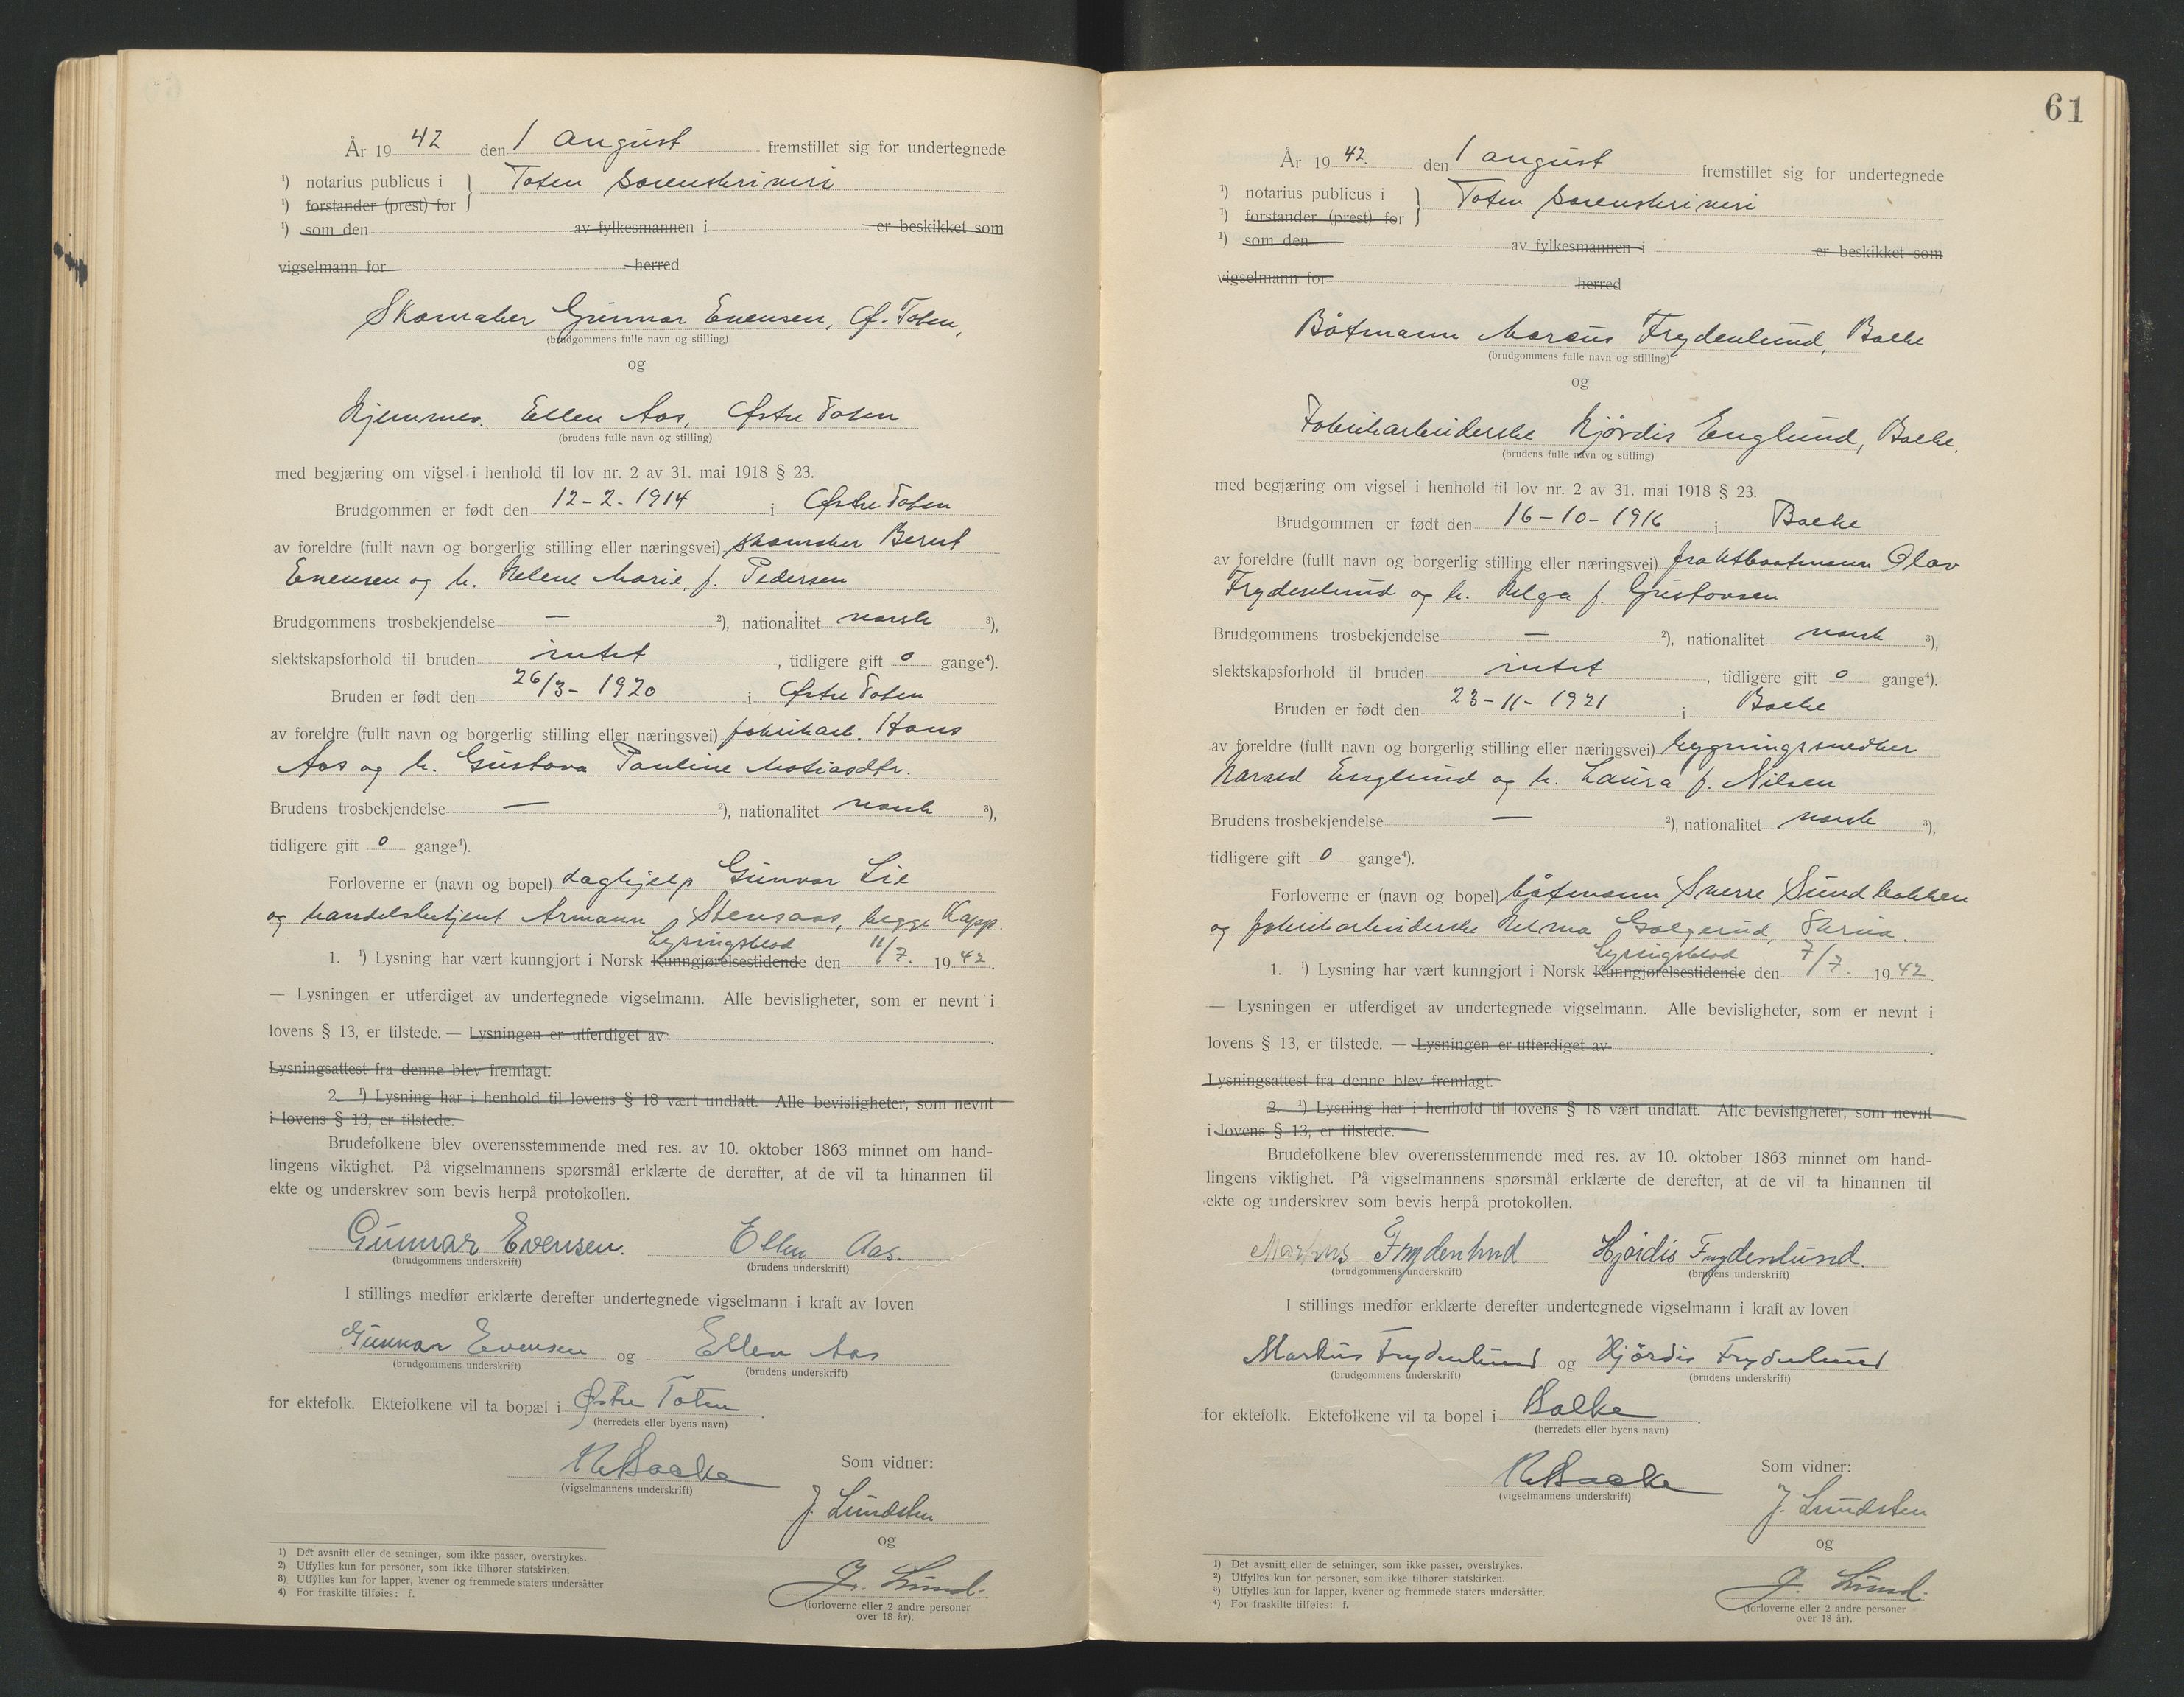 År 19 42 den 1 august fremstillet sig for undertegnede
¹) notarius publicus i } Toten sorenskriveri
¹) forstander (prest) for
¹) som den av fylkesmannen i er beskikket som
vigselmann for herred
Skomaker Gunnar Evensen, Ø. Toten,
(brudgommens fulle navn og stilling)
og
Hjemmev. Ellen Aas, Østre Toten
(brudens fulle navn og stilling)
med begjæring om vigsel i henhold til lov nr. 2 av 31. mai 1918 § 23.
Brudgommen er født den 12-2-1914 i Østre Toten
av foreldre (fullt navn og borgerlig stilling eller næringsvei) skomaker Bernt
Evensen og h. Helene Marie, f. Pedersen
Brudgommens trosbekjendelse — ²), nationalitet norsk ³),
slektskapsforhold til bruden intet, tidligere gift 0 gange⁴).
Bruden er født den 26/3-1920 i Østre Toten
av foreldre (fullt navn og borgerlig stilling eller næringsvei) fabrikarb. Hans
Aas og h. Gustava Pauline Matiasdtr.
Brudens trosbekjendelse — ²), nationalitet norsk ³),
tidligere gift 0 gange⁴).
Forloverne er (navn og bopel) daghjelp Gunvor Lie
og handelsbetjent Armann Stensaas, begge Kapp.
Lysingsblad
1. ¹) Lysning har vært kunngjort i Norsk Kunngjørelsestidende den 11/7. 19 42.
— Lysningen er utferdiget av undertegnede vigselmann. Alle bevisligheter, som er nevnt i
lovens § 13, er tilstede. — Lysningen er utferdiget av .
Lysningsattest fra denne blev fremlagt.
2. ¹) Lysning har i henhold til lovens § 18 vært undlatt. Alle bevisligheter, som nevnt
i lovens § 13, er tilstede.
Brudefolkene blev overensstemmende med res. av 10. oktober 1863 minnet om hand-
lingens viktighet. På vigselmannens spørsmål erklærte de derefter, at de vil ta hinannen til
ekte og underskrev som bevis herpå protokollen.
Gunnar Evensen. Ellen Aas.
(brudgommens underskrift) (brudens underskrift)
I stillings medfør erklærte derefter undertegnede vigselmann i kraft av loven
Gunnar Evensen og Ellen Aas
(brudgommens underskrift) (brudens underskrift)
for ektefolk. Ektefolkene vil ta bopæl i Østre Toten.
(herredets eller byens navn)
(vigselmannens underskrift)
Som vidner:
J. Lundsten
og
Lund.
(forloverne eller 2 andre personer
over 18 år).
¹) Det avsnitt eller de setninger, som ikke passer, overstrykes.
²) Utfylles kun for personer, som ikke tilhører statskirken.
³) Utfylles kun for lapper, kvener og fremmede staters undersåtter
⁴) For fraskilte tilføies: f.
61
År 19 42. den 1 august fremstillet sig for undertegnede
¹) notarius publicus i } Toten sorenskriveri
¹) forstander (prest) for
¹) som den av fylkesmannen i er beskikket som
vigselmann for herred
Båtmann Marcus Frydenlund, Balke
(brudgommens fulle navn og stilling)
og
Fabrikarbeiderske Hjørdis Englund, Balke.
(brudens fulle navn og stilling)
med begjæring om vigsel i henhold til lov nr. 2 av 31. mai 1918 § 23.
Brudgommen er født den 16-10-1916 i Balke
av foreldre (fullt navn og borgerlig stilling eller næringsvei) fraktbaatmann Olav
Frydenlund og h. Helga f. Gustavsen
Brudgommens trosbekjendelse — ²), nationalitet norsk ³),
slektskapsforhold til bruden intet, tidligere gift 0 gange⁴).
Bruden er født den 23-11-1921 i Balke
av foreldre (fullt navn og borgerlig stilling eller næringsvei) bygningssnedker
Harald Englund og h. Laura f. Nilsen
Brudens trosbekjendelse — ²), nationalitet norsk ³),
tidligere gift 0 gange⁴).
Forloverne er (navn og bopel) båtmann Sverre Sundbakken
og fabrikarbeiderske Helma
Lysingsblad
1. ¹) Lysning har vært kunngjort i Norsk Kunngjørelsestidende den 7/7. 19 42.
— Lysningen er utferdiget av undertegnede vigselmann. Alle bevisligheter, som er nevnt i
lovens § 13, er tilstede. — Lysningen er utferdiget av .
Lysningsattest fra denne blev fremlagt.
2. ¹) Lysning har i henhold til lovens § 18 vært undlatt. Alle bevisligheter, som nevnt
i lovens § 13, er tilstede.
Brudefolkene blev overensstemmende med res. av 10. oktober 1863 minnet om hand-
lingens viktighet. På vigselmannens spørsmål erklærte de derefter, at de vil ta hinannen til
ekte og underskrev som bevis herpå protokollen.
Markus Frydenlund Hjørdis Frydenlund.
(brudgommens underskrift) (brudens underskrift)
I stillings medfør erklærte derefter undertegnede vigselmann i kraft av loven
Markus Frydenlund og Hjørdis Frydenlund
(brudgommens underskrift) (brudens underskrift)
for ektefolk. Ektefolkene vil ta bopel i Balke.
(herredets eller byens navn)
(vigselmannens underskrift)
Som vidner:
J. Lundsten
og
Lund.
(forloverne eller 2 andre personer
over 18 år).
¹) Det avsnitt eller de setninger, som ikke passer, overstrykes.
²) Utfylles kun for personer, som ikke tilhører statskirken.
³) Utfylles kun for lapper, kvener og fremmede staters undersåtter.
⁴) For fraskilte tilføies: f.